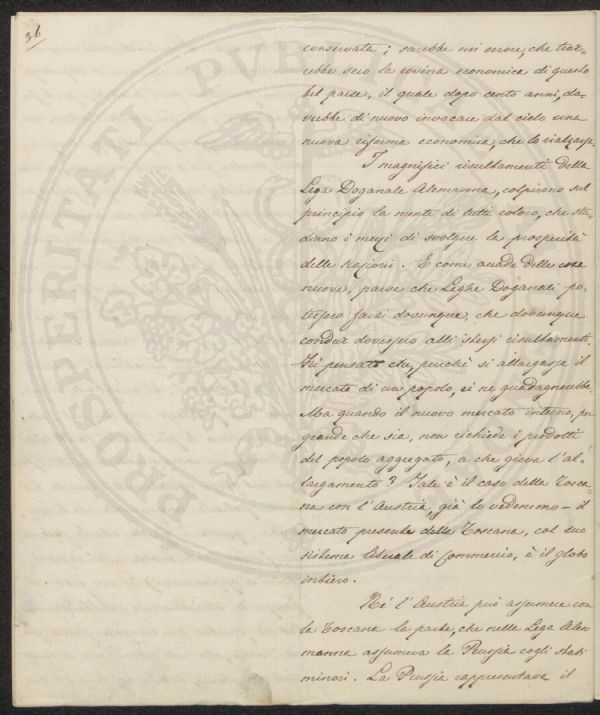 36
conservata; sarebbe un errore, che trar-
rebbe seco la rovina economica di questo
bel paese, il quale dopo cento anni, do-
vrebbe di nuovo invocare dal cielo una
nuova riforma economica, che lo rialzasse.
I magnifici risultamenti della
Lega Doganale Alemanna, colpirono sul
principio la mente di tutti coloro, che stu-
diano i mezzi di svolgere la prosperità
delle Nazioni. E come accade delle cose
nuove, parve che Leghe Doganali po-
tessero farsi dovunque, che dovunque
condur dovessero alli stessi risultamenti.
Fù pensato che, perchè si allargasse il
mercato di un popolo, ei ne guadagnerebbe.
Ma quando il nuovo mercato interno, per
grande che sia, non richiede i prodotti
del popolo aggregato, a che giova l'al-
largamento? Tale è il caso della Tosca-
na con l'Austria, già lo vedemmo – il
mercato presente della Toscana, col suo
sistema liberale di Commercio, è il globo
intiero.
Nè l'Austria può assumere con
la Toscana la parte, che nella Lega Ale-
manna assumeva la Prussia cogli stati
minori. La Prussia rappresentava il
PROSPERITATI PUBLICAE